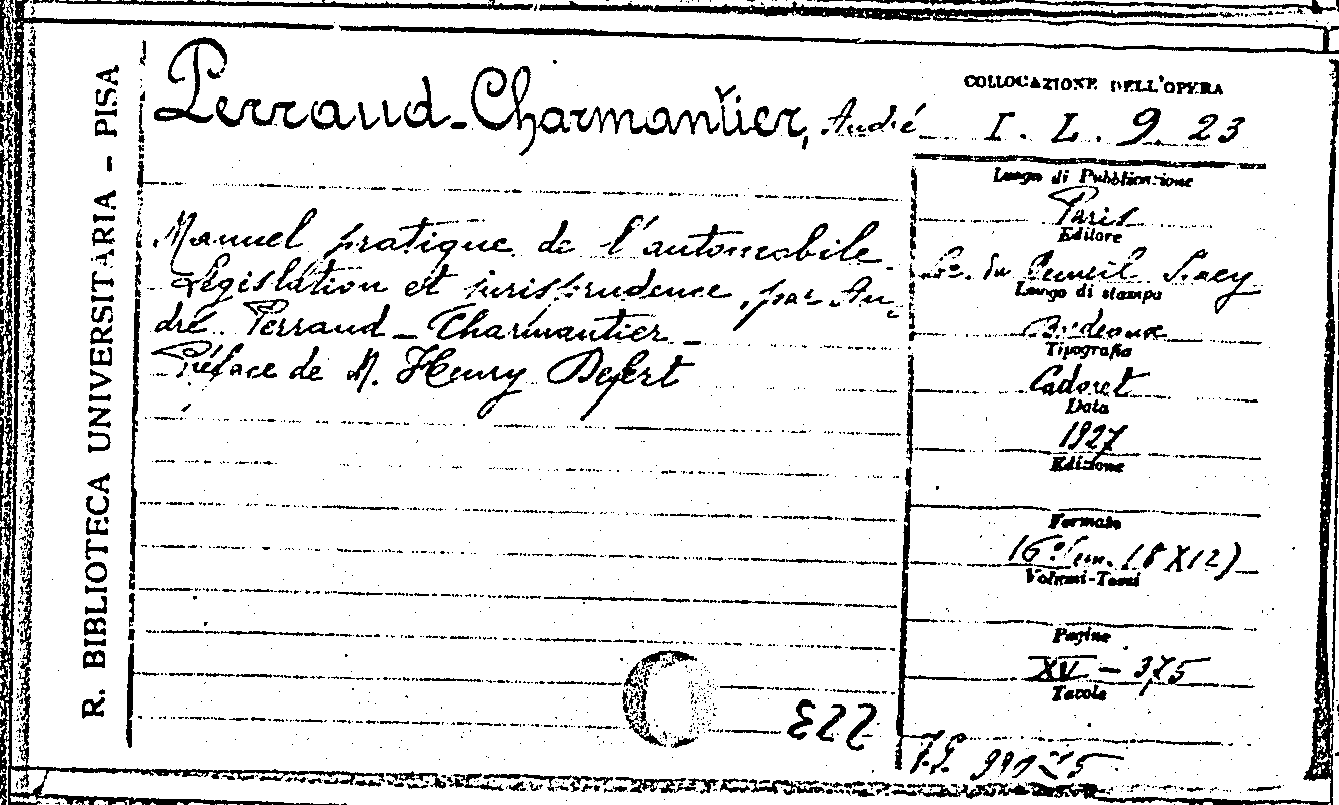 R. BIBLIOTECA UNIVERSITARIA - PISA
Perraud-Charmantier, André
Manuel pratique de l'automobile.
Législation et jurisprudence, par An-
dré Perraud-Charmantier -
Préface de M. Henry Defert
COLLOCAZIONE DELL'OPERA
I. L. 9. 23
Luogo di Pubblicazione
Paris
Editore
du Recueil Sirey
Luogo di stampa
Bordeaux
Tipografia
Cadoret
Data
1927
Edizione
Formato
16° (cm. 18X12)
Volumi-Tomi
Pagine
XV - 375
Tavole